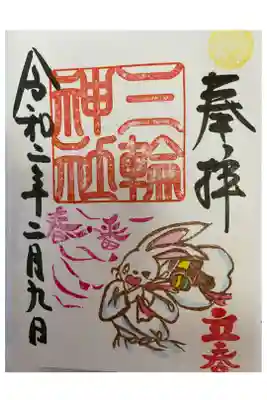 奉拝
立春
三輪
神社
春一番
令和二年二月九日